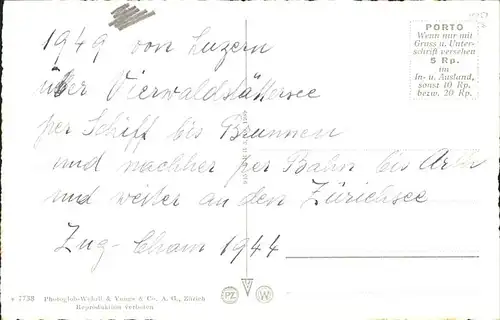 PORTO
Wenn nur mit
Gruss u. Unter-
schrift versehen
5 Rp.
im
In- u. Ausland,
sonst 10 Rp.
bezw. 20 Rp.
1949 von Luzern
über Vierwaldstättersee
per Schiff bis Brunnen
und nachher per Bahn bis Arth
und weiter an den Zürichsee
Zug - Cham 1944
7738 Photoglob-Wehrli & Vouga & Co. A. G., Zürich
Reproduktion verboten
PZ
W